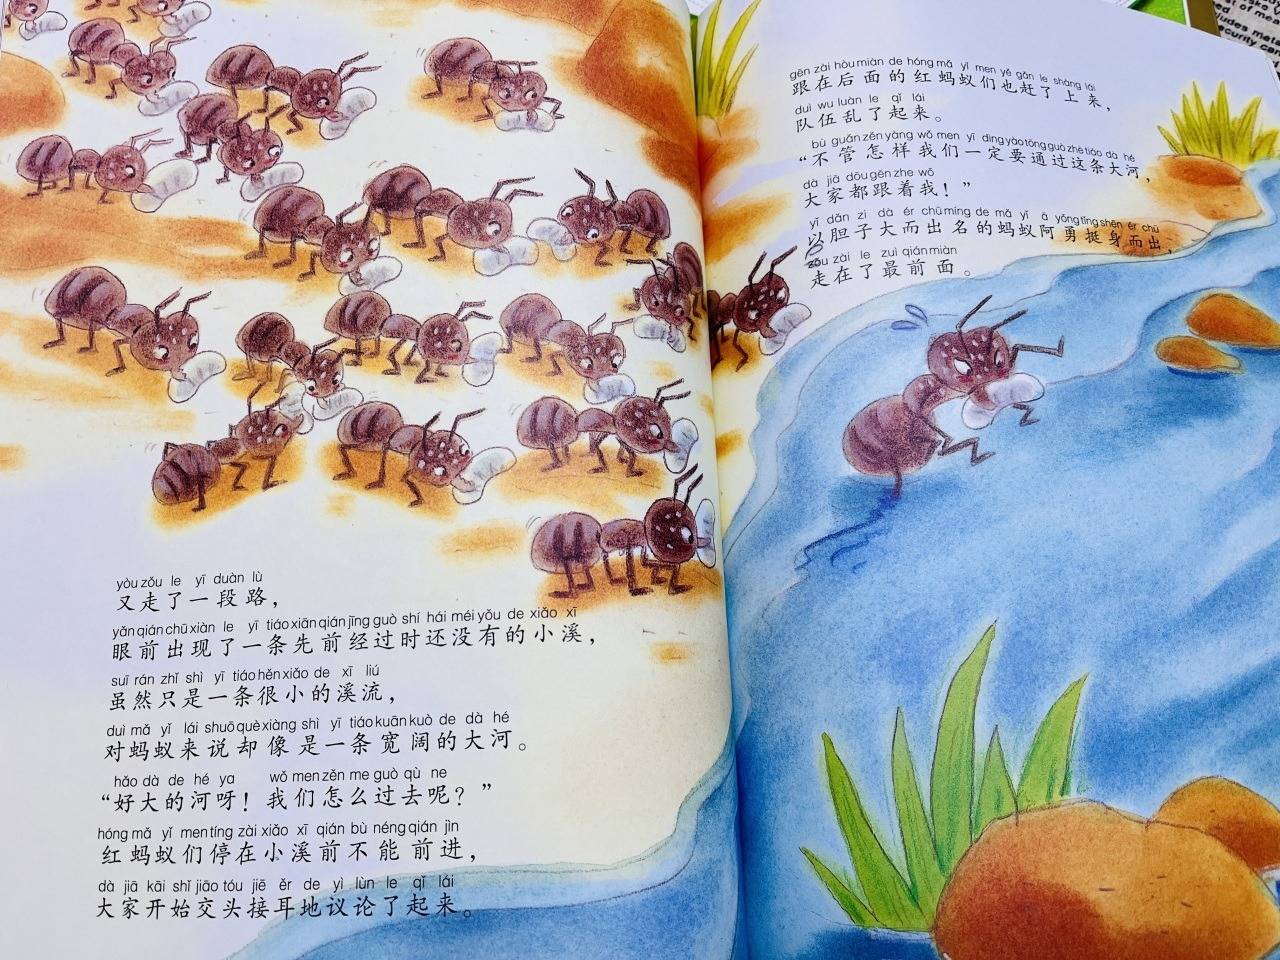 yòu zǒu le yī duàn lù
又走了一段路，
yǎn qián chū xiàn le yī tiáo xiān qián jīng guò shí hái méi yǒu de xiǎo xī
眼前出现了一条先前经过时还没有的小溪，
suī rán zhǐ shì yī tiáo hěn xiǎo de xī liú
虽然只是一条很小的溪流，
duì mǎ yǐ lái shuō què xiàng shì yī tiáo kuān kuò de dà hé
对蚂蚁来说却像是一条宽阔的大河。
hǎo dà de hé ya wǒ men zěn me guò qù ne
“好大的河呀！我们怎么过去呢？”
hóng mǎ yǐ men tíng zài xiǎo xī qián bù néng qián jìn
红蚂蚁们停在小溪前不能前进，
dà jiā kāi shǐ jiāo tóu jiē ěr de yì lùn le qǐ lái
大家开始交头接耳地议论了起来。
gēn zài hòu miàn de hóng mǎ yǐ men yě gǎn le shàng lái
跟在后面的红蚂蚁们也赶了上来，
duì wu luàn le qǐ lái
队伍乱了起来。
bù guǎn zěn yàng wǒ men yī dìng yào tōng guò zhè tiáo dà hé
“不管怎样我们一定要通过这条大河，
dà jiā dōu gēn zhe wǒ
大家都跟着我！”
yǐ dǎn zi dà ér chū míng de mǎ yǐ ā yǒng tǐng shēn ér chū
以胆子大而出名的蚂蚁阿勇挺身而出，
zǒu zài le zuì qián miàn
走在了最前面。